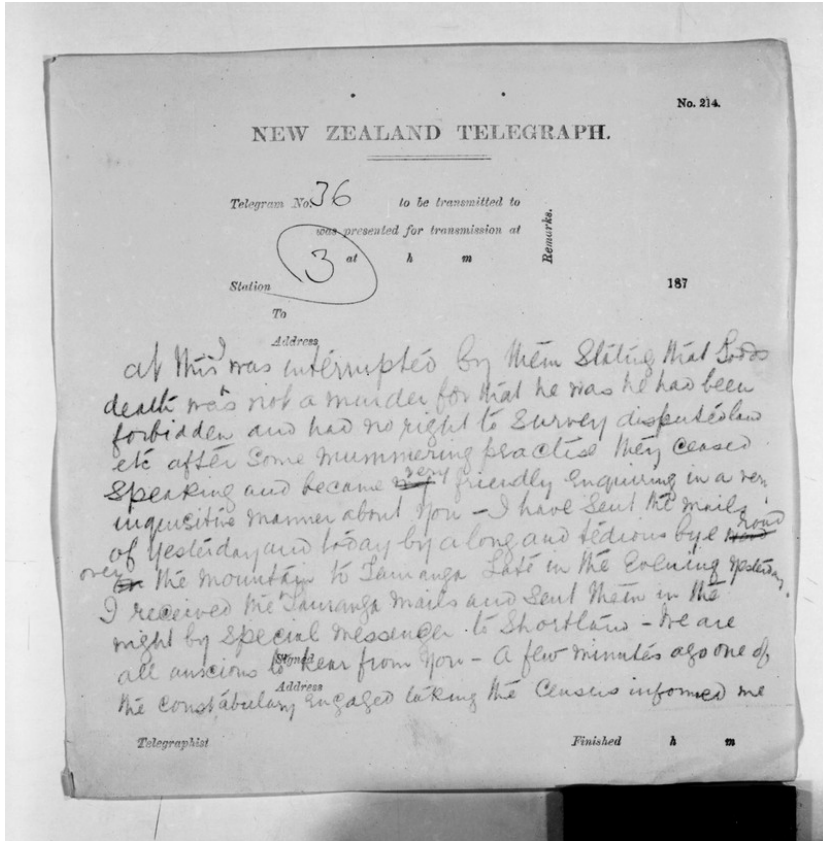 No. 214.
NEW ZEALAND TELEGRAPH.
Telegram No. 36 to be transmitted to
was presented for transmission at
3 at h m
Remarks.
Station 187
To
Address
at this I was interrupted by them stating that Todds
death was not a murder for that he was he had been
forbidden and had no right to survey disputed lan
etc after some mummering practise they ceased
speaking and became very friendly enquiring in a very
inquisitive manner about you – I have sent the mails
of yesterday and today by a long and tedious bye road
over the mountain to Tauranga Late in the Evening yesterday.
I received the Tauranga mails and sent them in the
night by special messenger to Shortland – We are
all anxious to hear from you – A few minutes ago one of
Signed
the constabulary engaged taking the Census informed me
Address
Telegraphist Finished h m